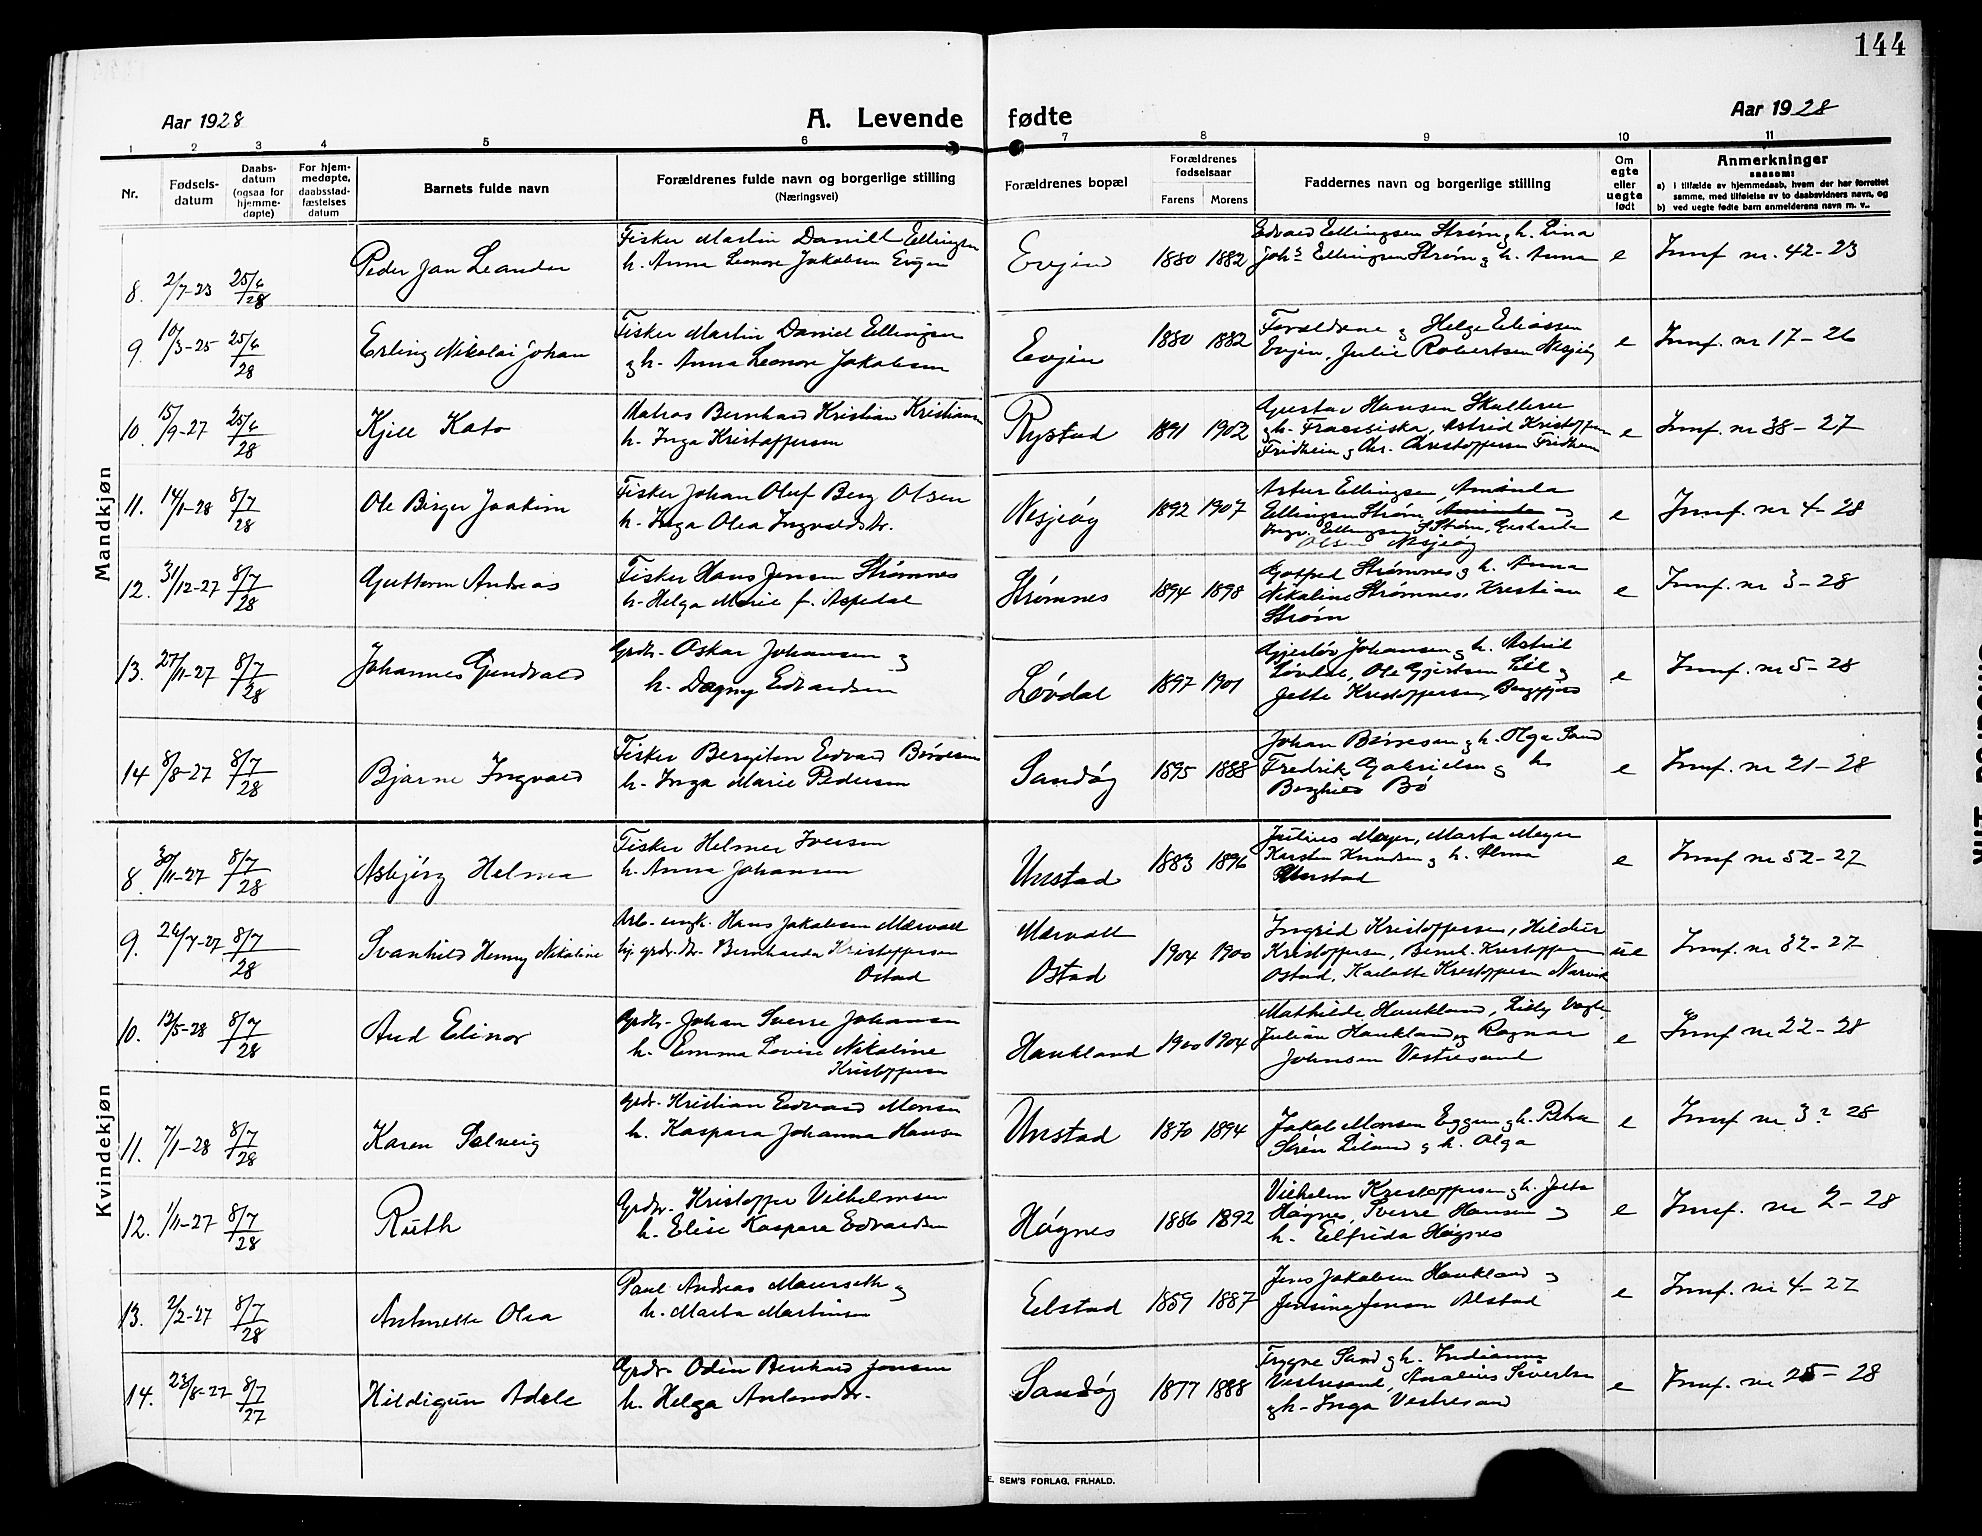 144
Aar 1928
A. Levende fødte
Aar 1928
1 2 3 4 5 6 7 8 9 10 11
Nr.
Fødsels-
datum
Daabs-
datum
(ogsaa for
hjemme-
døpte)
For hjem-
medøpte,
daabsstad-
fæstelses
datum
Barnets fulde navn
Forældrenes fulde navn og borgerlige stilling
(Næringsvei)
Forældrenes bopæl
Forældrenes
fødselsaar
Farens Morens
Faddernes navn og borgerlige stilling
Om
egte
eller
uegte
født
Anmerkninger
saasom:
a) i tilfælde av hjemmedaab, hvem der har forrettet
samme, med tilføielse av to daabsvidners navn, og
b) ved uegte fødte barn anmelderens navn m. v..
Mandkjøn
8. 2/7-23 25/6 28 Peder Jan Leander
Fisker Martin Daniel Ellingsen
h. Anna Leonore Jakobsen Evjen
Evjen 1880 1882
Edvard Ellingsen Strøm og h. Lina
Johs Ellingsen Strøm og h. Anna
e Innf nr. 42-23
9. 10/3-25 25/6 28 Erling Nikolai Johan
Fisker Martin Daniel Ellingsen
og h. Anna Leonore Jakobsen
Evjen 1880 1882
Forældrene og Helge Eliassen
Evjen, Julie Robertsen Nesjeøy
e Innf. nr 17-26
10. 15/9-27 25/6 28 Kjell Kato
Matros Bernhard Kristian Kristiansen
h. Inga Kristoffersen
Rystad 1891 1902
Gustav Hansen
og h. Astrid Kristoffersen
Fridheim og Chr. Christoffersen Fridheim
e Innf. nr 38-27
11. 14/1-28 8/7 28 Ole Birger Joakim
Fisker Johan Oluf Berg Olsen
h. Inga Olea Ingvaldsdtr.
Nesjeøy 1892 1907
Artur Ellingsen, Amanda
Ellingsen Strøm, Amanda og
Ingv. Ellingsen Strøm, Gerharda
Olsen Nesjeøy
e Innf. nr 4-28
12. 31/12-27 8/7 28 Guttorm Andreas
Fisker Hans Jensen Strømnes
h. Helga Marie f. Aspedal
Strømnes 1894 1898
Gotfred Strømnes og h. Anna
Nikoline Strømnes, Kristian
Strøm
e Innf. nr 3-28
13. 27/11-27 8/7 28 Johannes Gundvald
Grdbr. Oskar Johansen og
h. Dagny Edvardsen
Løvdal 1897 1901
Gjerløv Johansen og h. Astrid
Løvdal, Ole Gjertsen Lil og
Jette Kristoffersen,
e Innf. nr 5-28
14 8/8-27 8/7 28 Bjarne Ingvald
Fisker Bergiton Edvard Børresen
h. Inga Marie Pedersen
Sandøy 1895 1888
Johan Børresen og h. Olga Sand
Fredrik Gabrielsen og h.
Borghild Bø
e Innf. nr 21-28
Kvindekjøn
8. 30/11-27 8/7 28 Asbjørg Helma
Fisker Helmer Iversen
h. Anna Johansen
Unstad 1883 1896
Julius Meyer, Marta Meyer
Karsten Knudsen og h. Alma
Unstad
e Innf nr 52-27
9. 26/7-27 8/7 28 Svanhild Henny Nikoline
Arb. ungk. Hans Jakobsen Mærvoll
og grdbr.dtr. Bernharda Kristoffersen
Ostad
Mærvoll
Ostad 1904 1900
Ingrid Kristoffersen, Hildur
Kristoffersen, Bernh. Kristoffersen
Ostad, Karlotte Kristoffersen Narvik
ue Innf. nr 32-27
10. 12/5-28 8/7 28 Aud Elinor
Grdbr. Johan Sverre Johansen
h. Emma Lovise Nikoline
Kristoffersen
Haukland 1900 1904
Mathilde Haukland, Lilly Vagle,
Julian Haukland og Ragnar
Johnsen Vestresand
e Innf. nr 22-28
11. 7/1-28 8/7 28 Karen Solveig
Grdbr. Kristian Edvard Monsen
h. Kaspara Johanna Hansen
Unstad 1870 1894
Jakob Monsen Eggum og h. Petra
Søren Liland og h. Olga
e Innf nr 3? 28
12. 1/11-27 8/7 28 Ruth
Grdbr. Kristoffer Vilhelmsen
h. Elise Kaspara Edvardsen
Høgnes 1886 1892
Vilhelm Kristoffersen og h. Jette
Høgnes, Sverre Hansen og
h. Elfrida Høgnes
e Innf. nr 2-28
13. 2/2-27 8/7 28 Antonette Olea
Paul Andreas Maurseth og
h. Marta Martinsen
Eelstad 1859 1887
Jens Jakobsen Haukland og
Jensine Jensen Alstad
e Innf. nr 4-27
14. 23/8-27 8/7 27 Hildigun Adele
Grdbr. Odin Bernhard Jensen
h. Helga Antonsdtr.
Sandøy 1877 1888
Trygve Sand og h. Indianna
Vestresand, Analius Sivertsen
og h. Inga Vestresand
e Innf. nr 25-28
E. SEM'S FORLAG, FR.HALD.